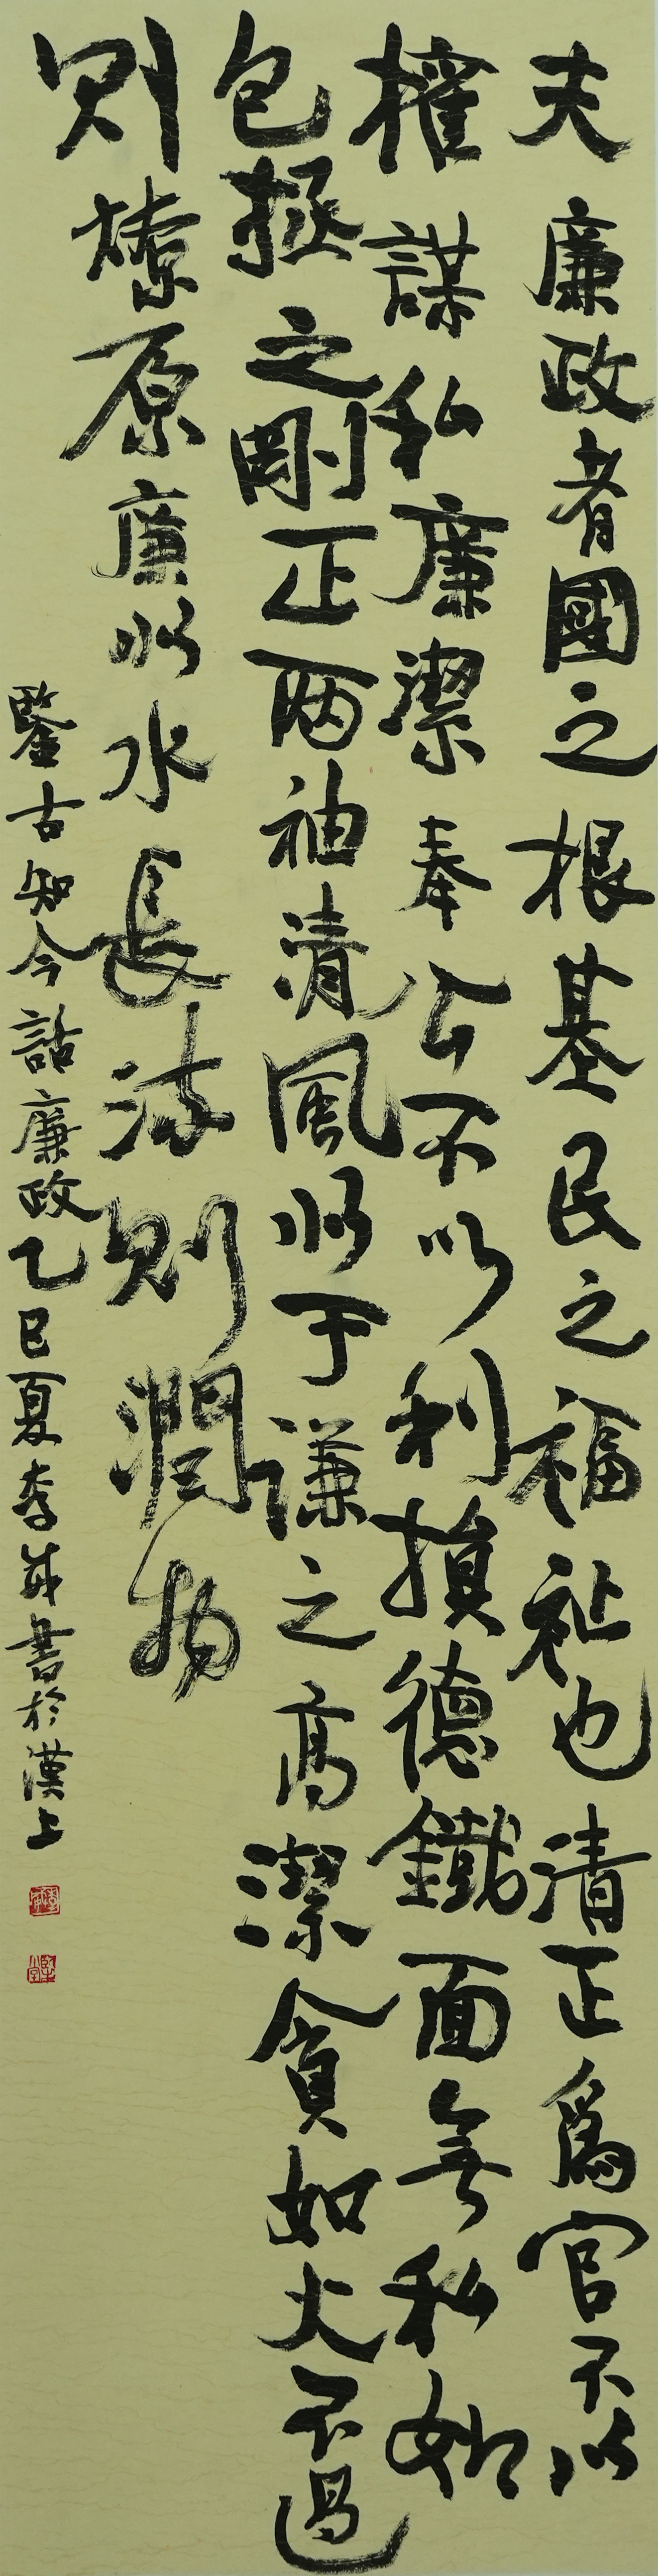 夫廉政者國之根基民之福祉也清正爲官不以
權謀私廉潔奉公不以利損德鐵面無私如
包拯之剛正两袖清風似于谦之高潔貪如火不遏
則燎原廉似水長流則潤物
鑒古知今話廉政乙巳夏李成書於漢上